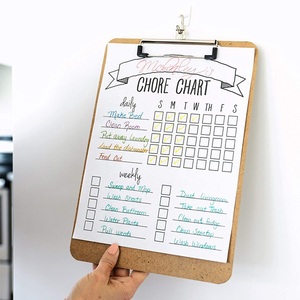 CHORE CHART
daily
S M T W T H F S
Make Bed
Clean Room
Put away laundry
Load the dishwasher
Feed Cat
weekly
Sweep and Mop
Wash Sheets
Clean Bathroom
Water Plants
Pull weeds
Dust Livingroom
Take out Trash
Clean out fridge
Clean Shower
Wash Windows